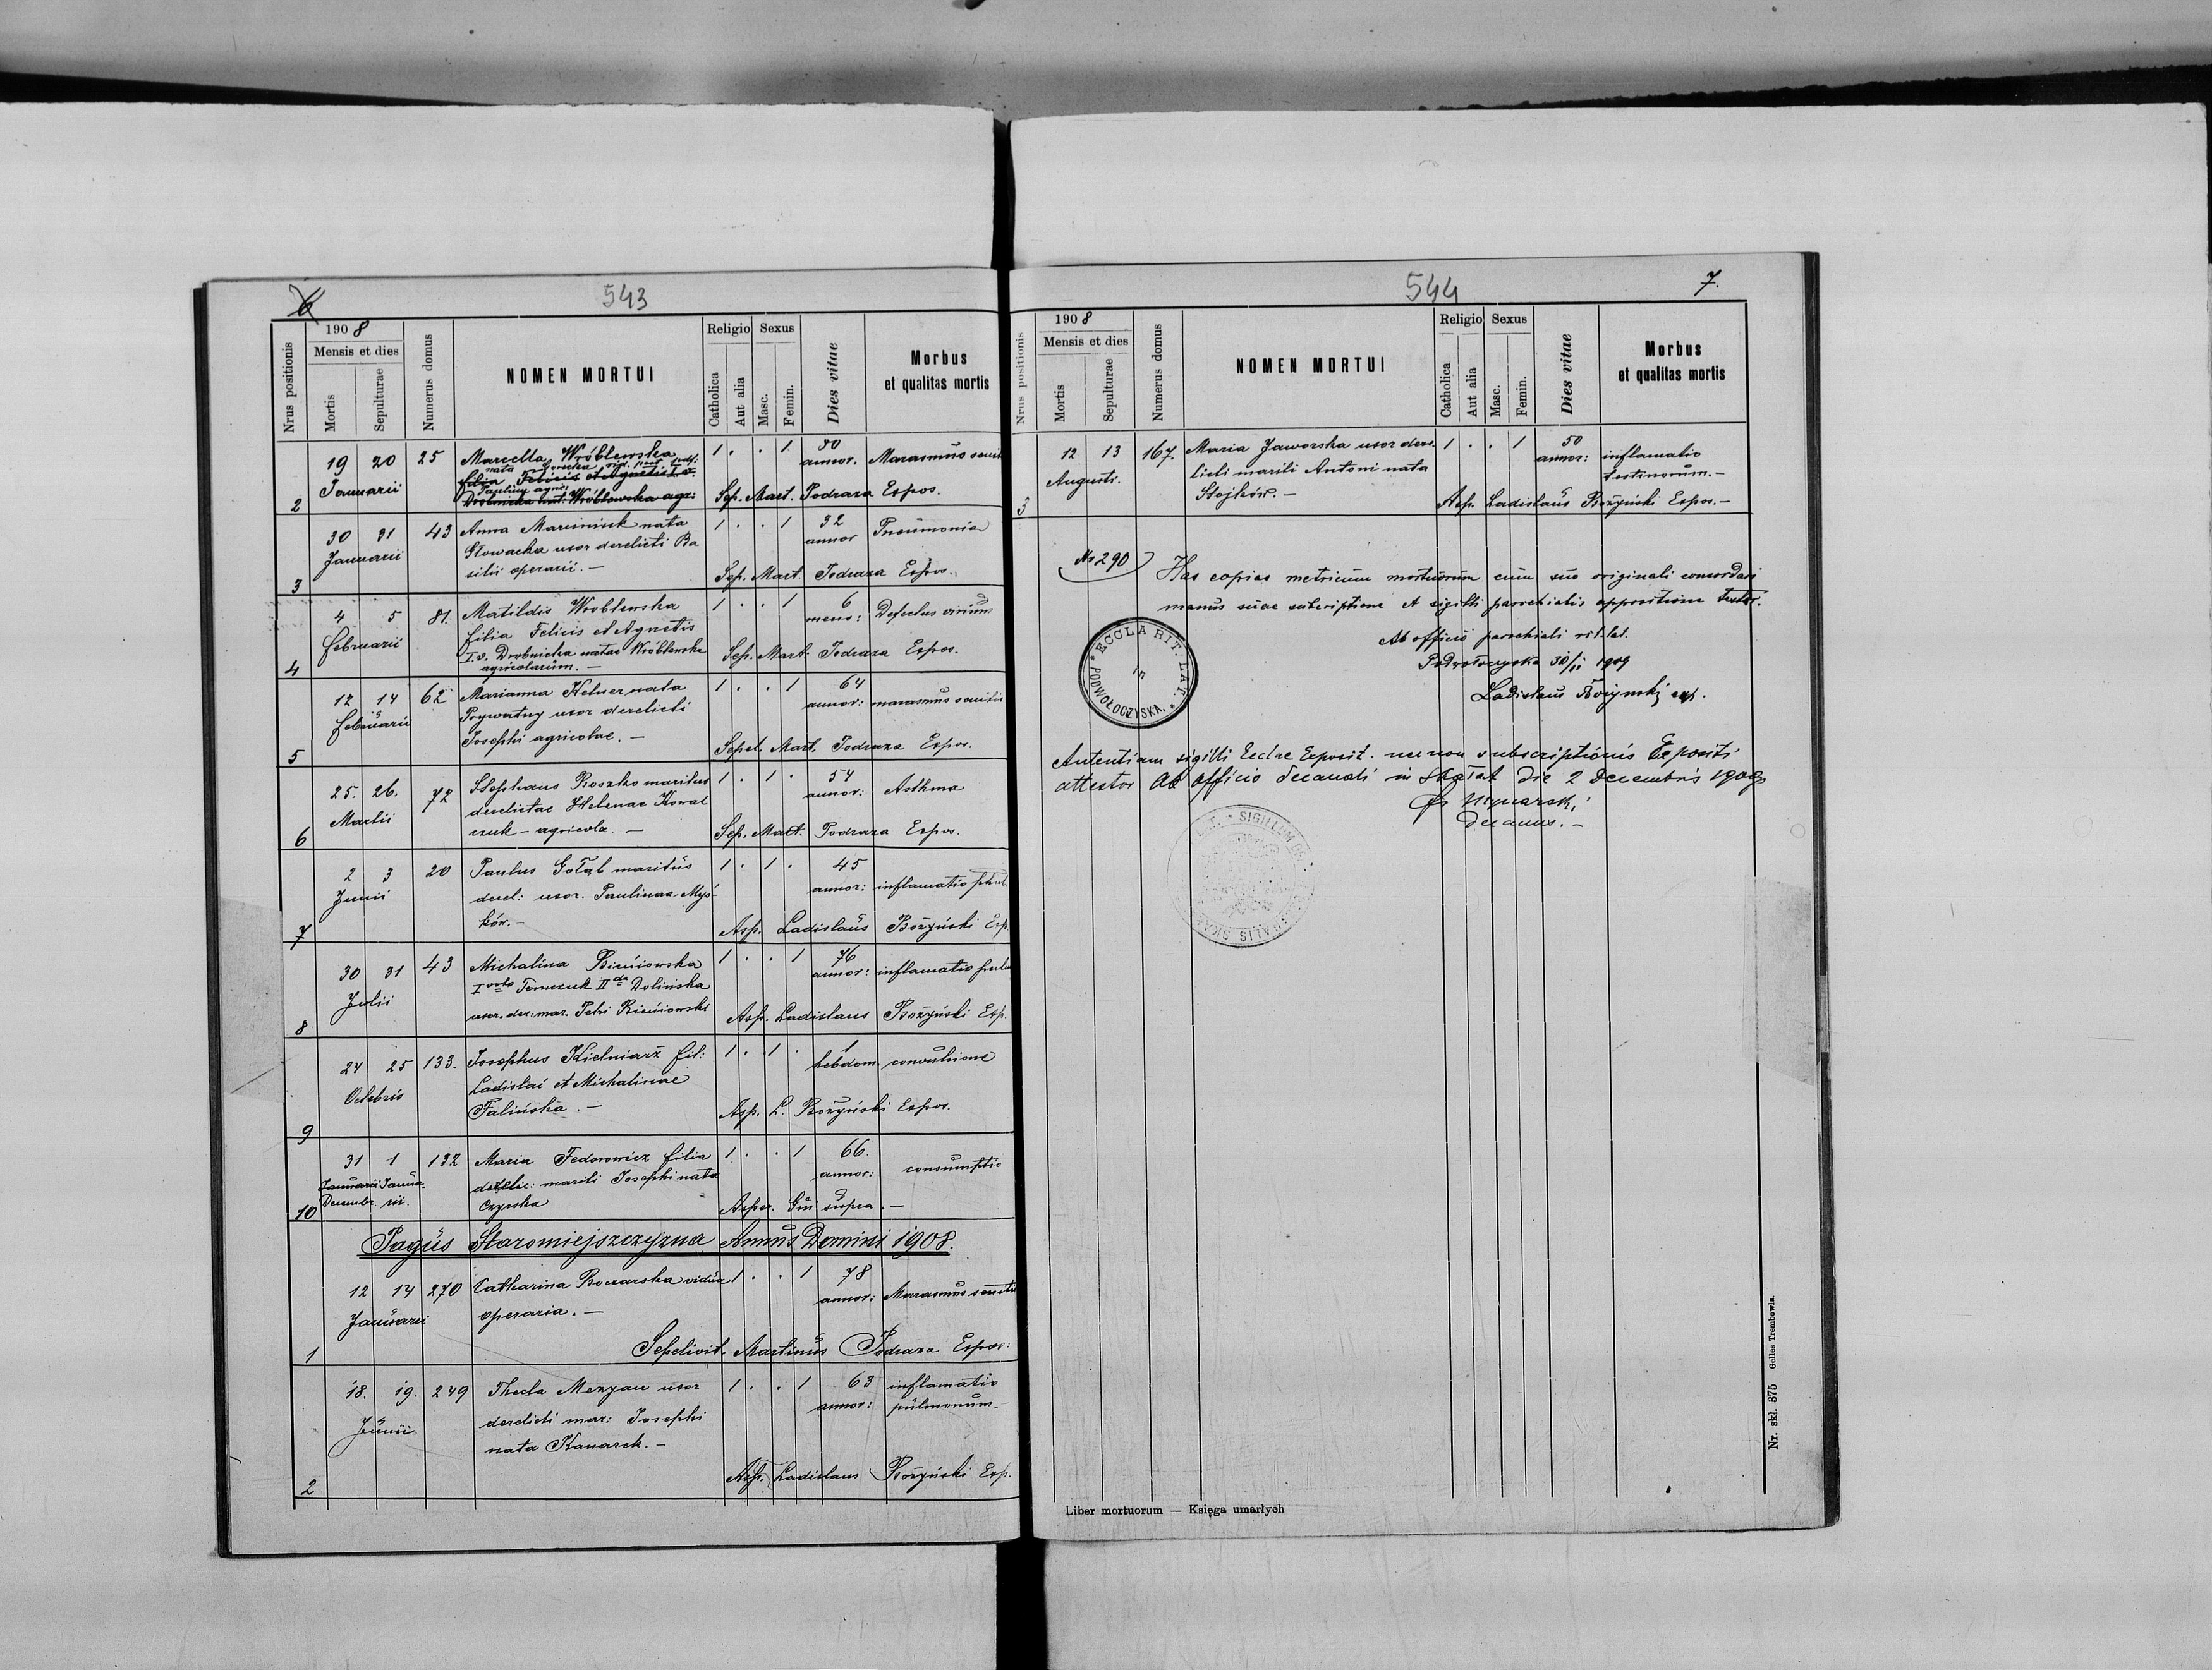 6
543
1908
Mensis et dies
Nrus positionis
Mortis
Sepulturae
Numerus domus
NOMEN MORTUI
Religio
Sexus
Catholica
Aut alia
Masc.
Femin.
Dies vitae
Morbus
et qualitas mortis
2
19 20 25 Marcella Wróblewska 1 . . 1 80
Januarii
annor. Marasmus senil
filia Felicis et Agnetis I. v.
Drobnicka nat. Wróblewska agr:
Sep. Mart. Podraza Expos.
3
30 31 43 Anna Marciniuk nata 1 . . 1 32
Januarii
Słowacka uxor derelicti Ba
annor Pneumonia
silii operarii. —
Sep. Mart. Podraza Expos.
4
4 5 81. Matildis Wróblewska 1 . . 1 6
Februarii
filia Felicis et Agnetis
mens: Defectus virium
I.v. Drobnicka natae Wróblewska
agricolarum. —
Sep. Mart. Podraza Expos.
5
12 14 62 Marianna Kelner nata 1 . . 1 64
Februarii
Prywatny uxor derelicti
annor: marasmus senilis
Josephi agricolae. —
Sepel. Mart. Podraza Expos.
6
25. 26. 72 Stephanus Roszko maritus 1 . 1 . 54
Martii
derelictae Helenae Kowal
annor: Asthma
czuk — agricola. —
Sep. Mart. Podraza Expos.
7
2 3 20 Paulus Gołąb maritus 1 . 1 . 45
Junii
derel: uxor. Paulinae Myś-
annor: inflamatio pul
ków. —
Asp. Ladislaus Bożyński Exp.
8
30 31 43 Michalina Bieniowska 1 . . 1 76
Julii
I voto Tomczuk II do Dolińska
annor: inflamatio pulm
uxor. der: mar. Petri Bieniowski
Asp. Ladislaus Bożyński Exp.
9
24 25 133. Josephus Kielniarz fil: 1 . 1 . 1
Octobris
Ladislai et Michalinae
hebdom. convulsione
Falińska. —
Asp. L. Bożyński Expos.
10
31 1 132 Maria Fedorowicz filia 1 . . 1 66.
Januarii Janua-
Decembr. rii.
derelic: mariti Josephi nata
annor: consumptio
Czyrska
Asper. Qui supra. —
Pagus Staromiejszczyzna Annus Domini 1908.
1
12 14 270 Catharina Boczarska vidua 1 . . 1 78
Januarii
operaria. —
annor: Marasmus senilis
Sepelivit. Martinus Podraza Expos:
2
18. 19. 249 Thecla Mezgau uxor 1 . . 1 63 inflamatio
Junii
derelicti mar: Josephi
annor: pulmonum —
nata Kanarek. —
Asp. Ladislaus Bożyński Exp.
544
7.
1908
Mensis et dies
Nrus positionis
Mortis
Sepulturae
Numerus domus
NOMEN MORTUI
Religio
Sexus
Catholica
Aut alia
Masc.
Femin.
Dies vitae
Morbus
et qualitas mortis
3
12 13 167. Maria Jaworska uxor dere- 1 . . 1 50
Augusti.
licti mariti Antoni nata
annor: inflamatio
testinorum. —
Stojków. —
Asp. Ladislaus Bożyński Expos. —
No 290
Has copias metricum mortuorum cum suo originali concordari
manus suae subscriptione et sigilli parochialis appositione testor.
Ab officio parochiali rit. lat.
Podwołoczyska 30/11 1909
Ladislaus Bożyński exp.
* ECCLA RIT. LAT. *
in
PODWOŁOCZYSKA.
Autentiam sigilli Eccl‎ae Exposit. necnon subscriptionis Expositi
attestor Ab officio decanali in Skałat die 2 Decembris 1909
decanus. —
SIGILLUM
Nr. skł. 375 Gelles Trembowla.
Liber mortuorum — Księga umarłych